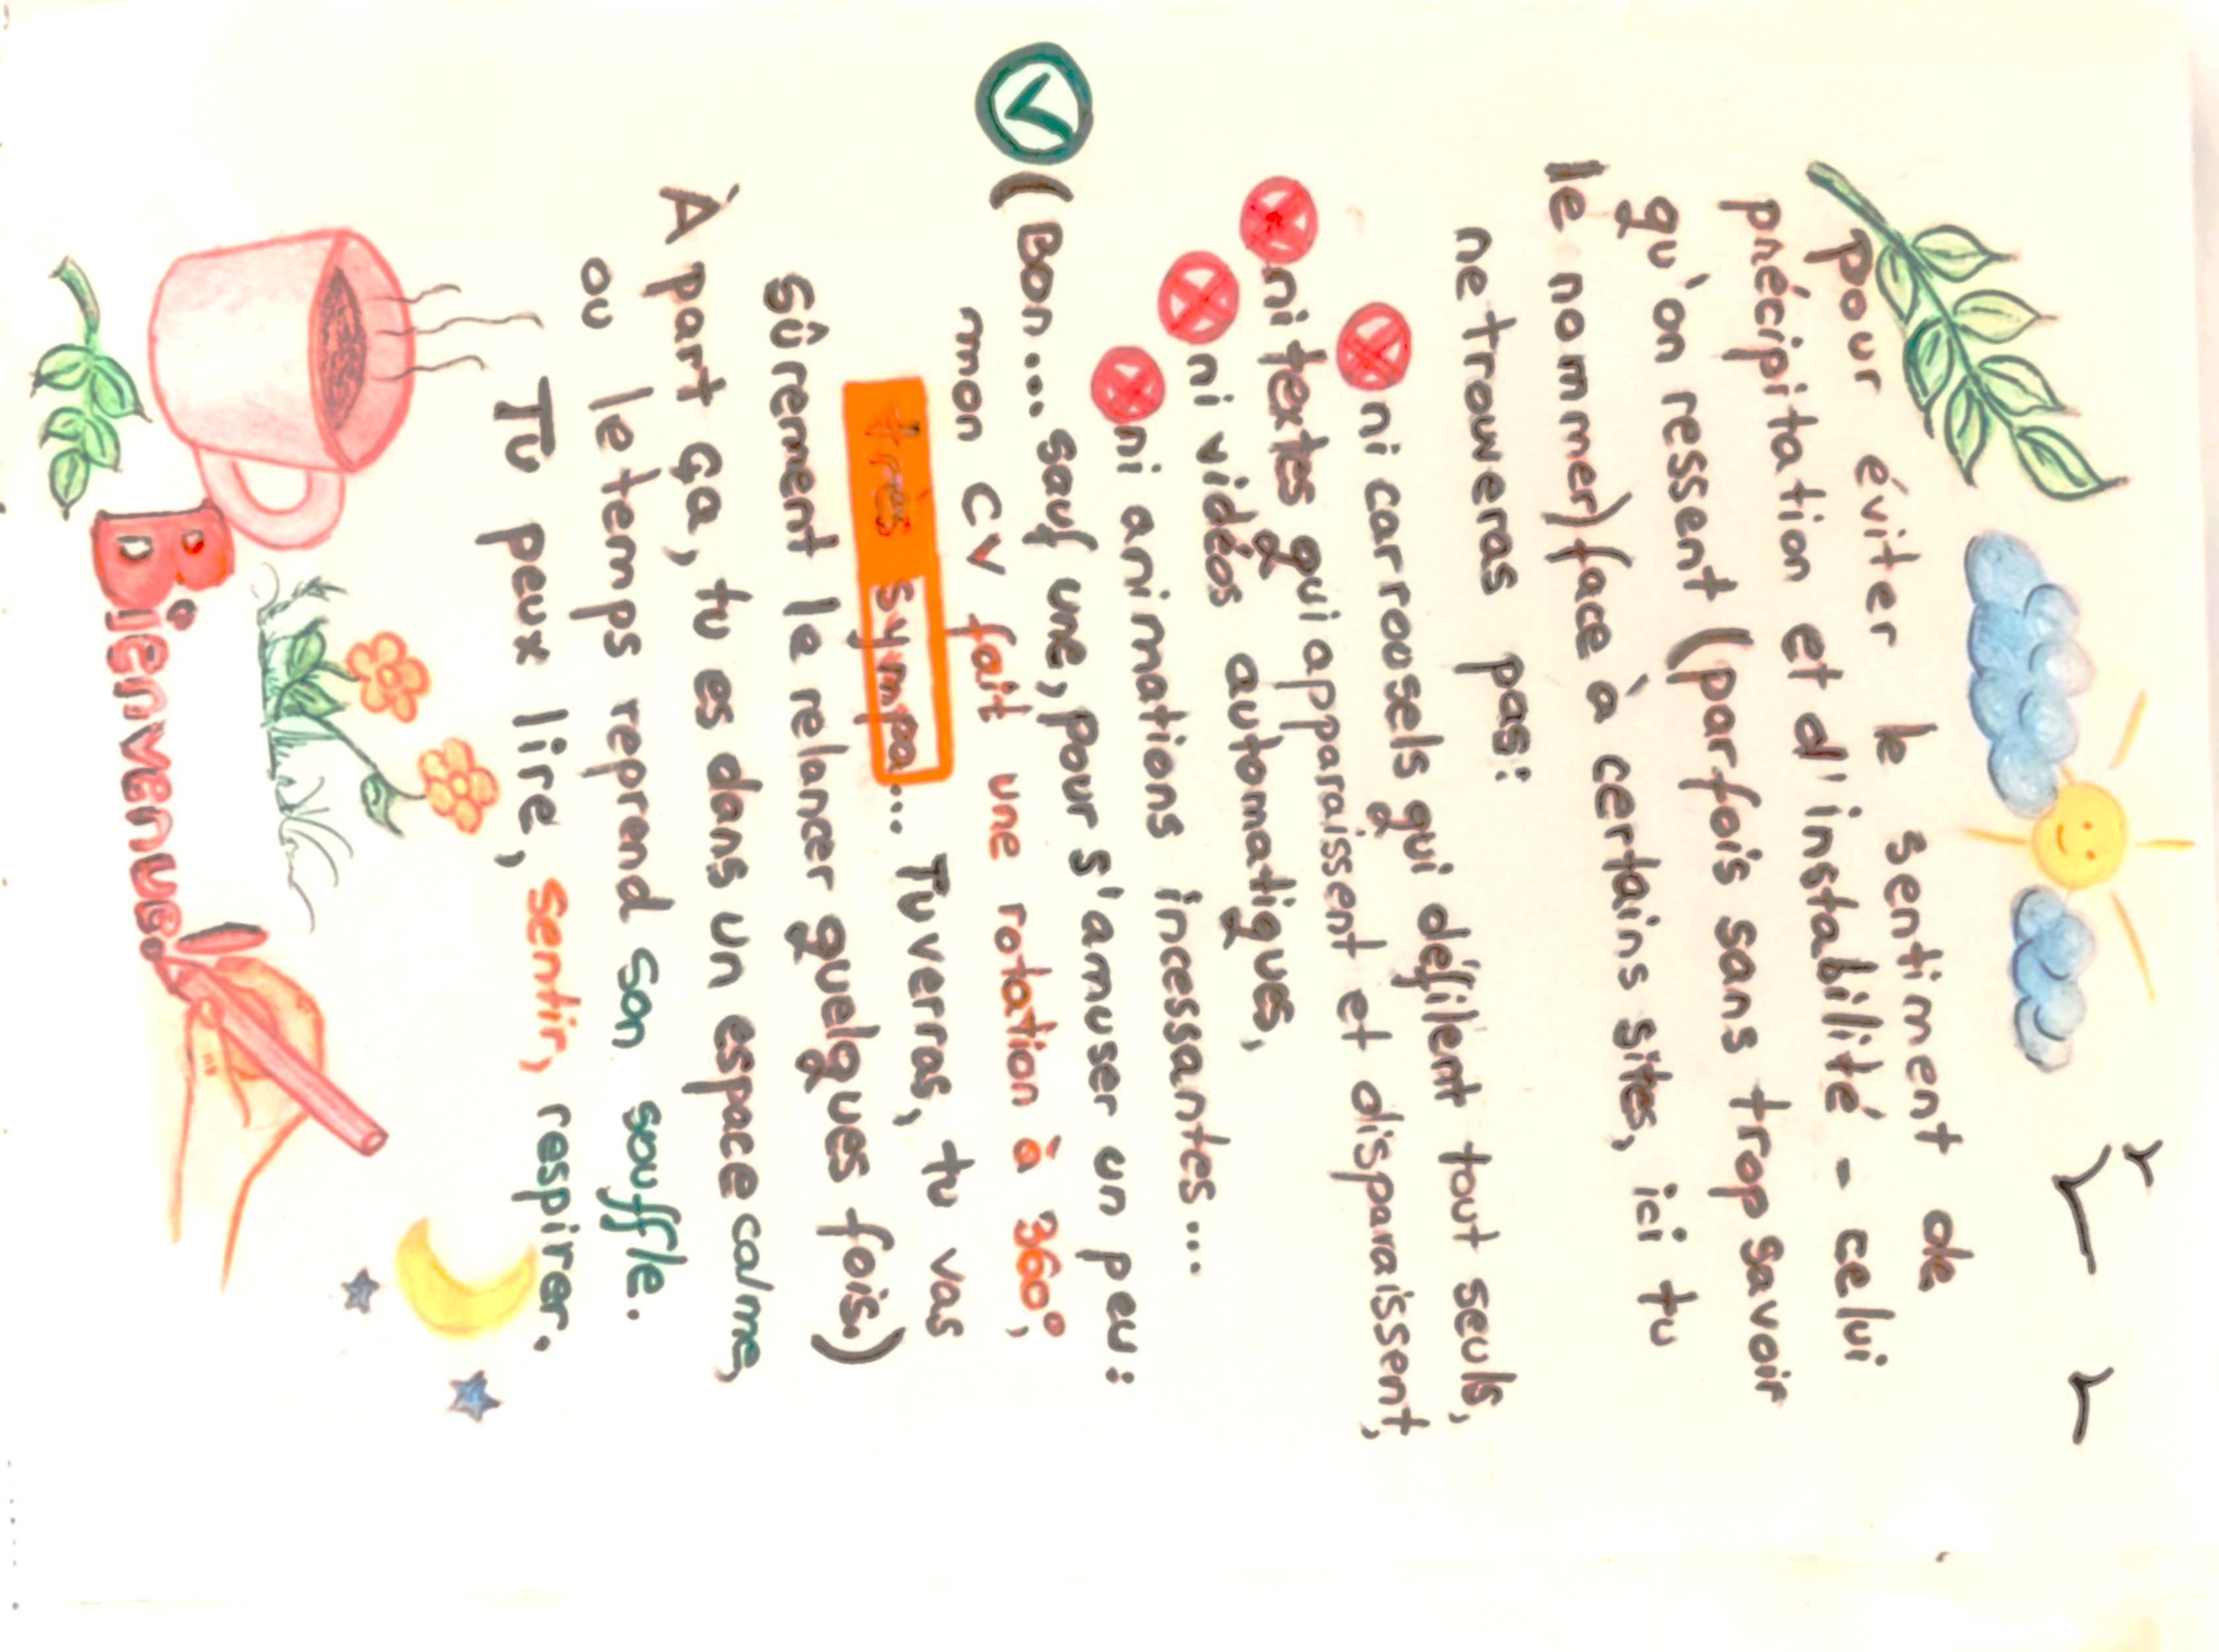 Pour éviter le sentiment de
précipitation et d'instabilité - celui
qu'on ressent (parfois sans trop savoir
le nommer) face à certains sites, ici tu
ne trouveras pas:
ni carrousels qui défilent tout seuls,
ni textes qui apparaissent et disparaissent,
ni vidéos automatiques,
ni animations incessantes...
(Bon... sauf une, pour s'amuser un peu:
mon CV fait une rotation à 360°,
très sympa... Tu verras, tu vas
sûrement le relancer quelques fois.)
À part ça, tu es dans un espace calme,
ou le temps reprend son souffle.
Tu peux lire, sentir, respirer.
Bienvenue!